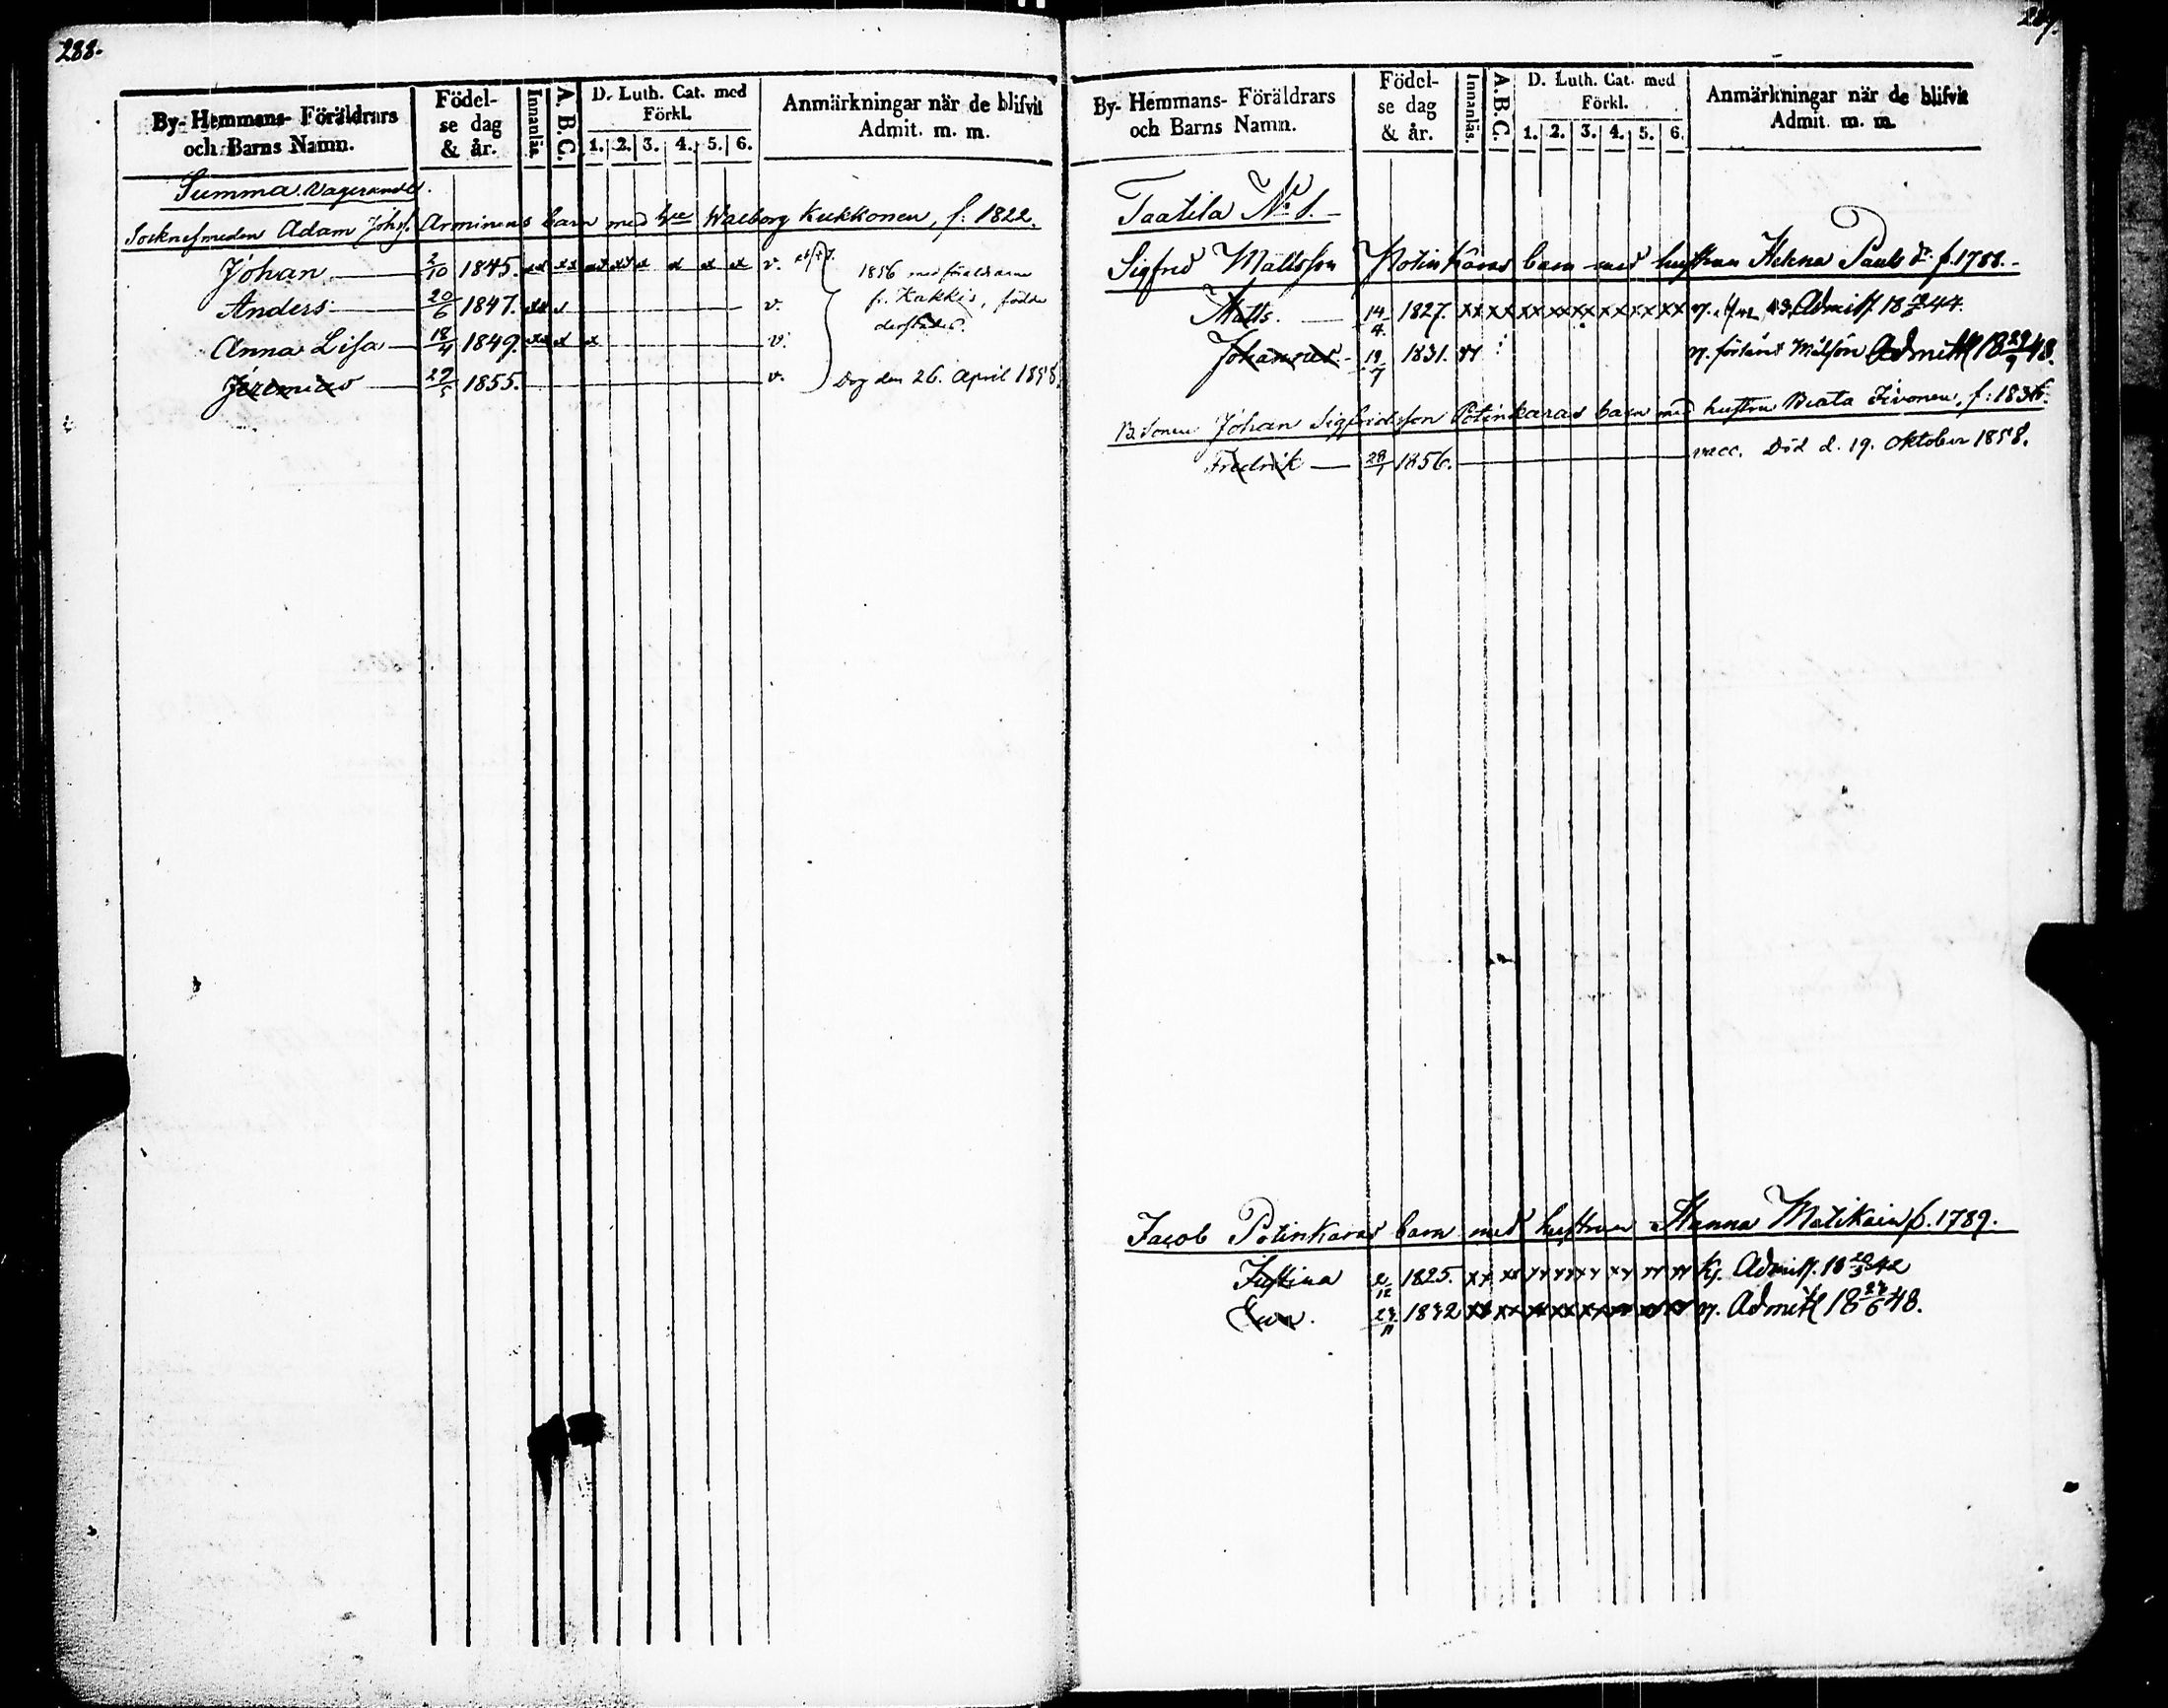 288.
By- Hemmans- Föräldrars
och Barns Namn.
Födel-
se dag
& år.
Innanläs.
A. B. C.
D. Luth. Cat. med
Förkl.
1. 2. 3. 4. 5. 6.
Anmärkningar när de blifvit
Admit. m. m.
Summa
Adam Johss. Arminens barn med Walborg Kukkonen, f. 1822.
Johan 2/10 1845. v. 1856 med föräldrarne
Anders 20/6 1847. v. fr. Kakkis, födde
Anna Lisa 18/4 1849. v. derstädes.
Jeremias 29/5 1855. v. Dog den 26. April 1858.
289.
By- Hemmans- Föräldrars
och Barns Namn.
Födel-
se dag
& år.
Innanläs.
A. B. C.
D. Luth. Cat. med
Förkl.
1. 2. 3. 4. 5. 6.
Anmärkningar när de blifvit
Admit. m. m.
Taatila No 1.
Sigfred Mattsson Potinkaras barn med hustrun Helena Pauls dr f. 1788.
Matts. 14/4 1827. xx xx xx xx xx xx xx xx Admiss. 18 44.
Johannes 19/7 1831. Admitt 18 29/9 48.
B. Sonen Johan Sigfridsson Potinkaras barn med hustru Beata f: 1836.
Fredrik 28/1 1856. vacc. Död d. 19. Oktober 1858.
Jacob Potinkaras barn med hustrun Hanna Matikain f. 1789.
Justina 2/12 1825. xx xx xx xx xx xx xx xx Admiss. 18 42
Eva. 1832 xx xx xx xx xx xx xx xx Admitt 18 48.